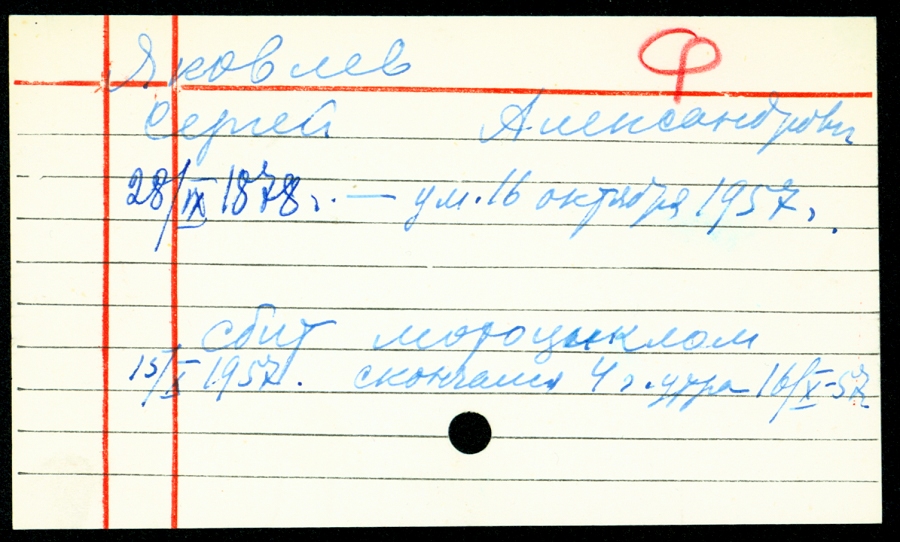 Ф
Яковлев
Сергей Александрович
28/IX 1878 г. — ум. 16 октября 1957 г.
сбит мотоцыклом
15/X 1957. скончался 4 ч. утра 16/X-57